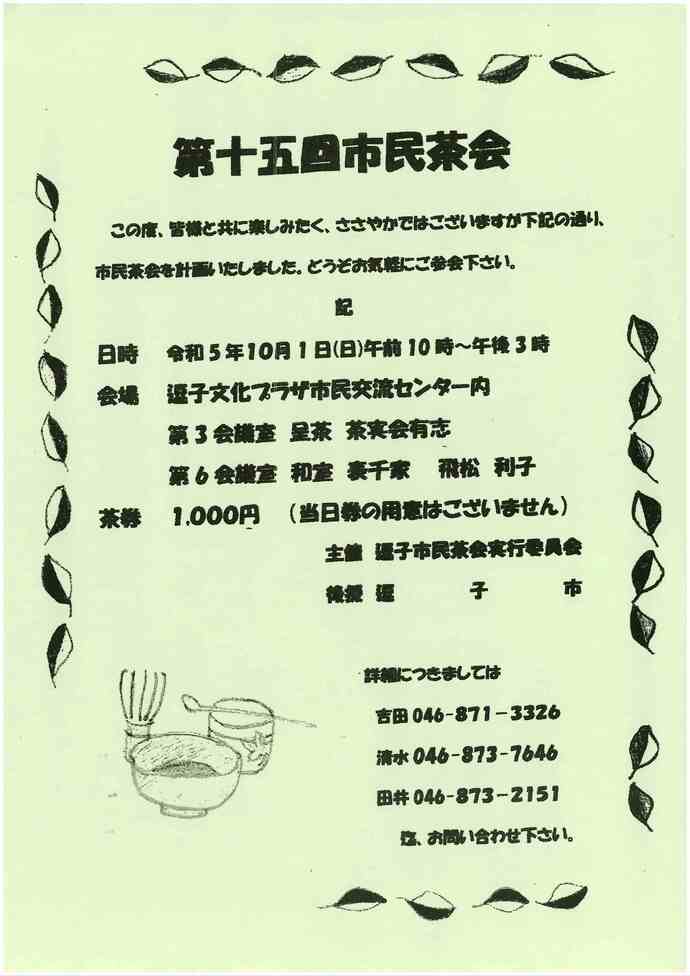 第十五回市民茶会
この度、皆様と共に楽しみたく、ささやかではございますが下記の通り、
市民茶会を計画いたしました。どうぞお気軽にご参会下さい。
記
日時 令和5年10月1日(日)午前10時～午後3時
会場 逗子文化プラザ市民交流センター内
第3会議室 呈茶 茶実会有志
第6会議室 和室 裏千家 飛松 利子
茶券 1,000円 (当日券の用意はございません)
主催 逗子市民茶会実行委員会
後援 逗 子 市
詳細につきましては
吉田 046-871-3326
清水 046-873-7646
田井 046-873-2151
迄、お問い合わせ下さい。